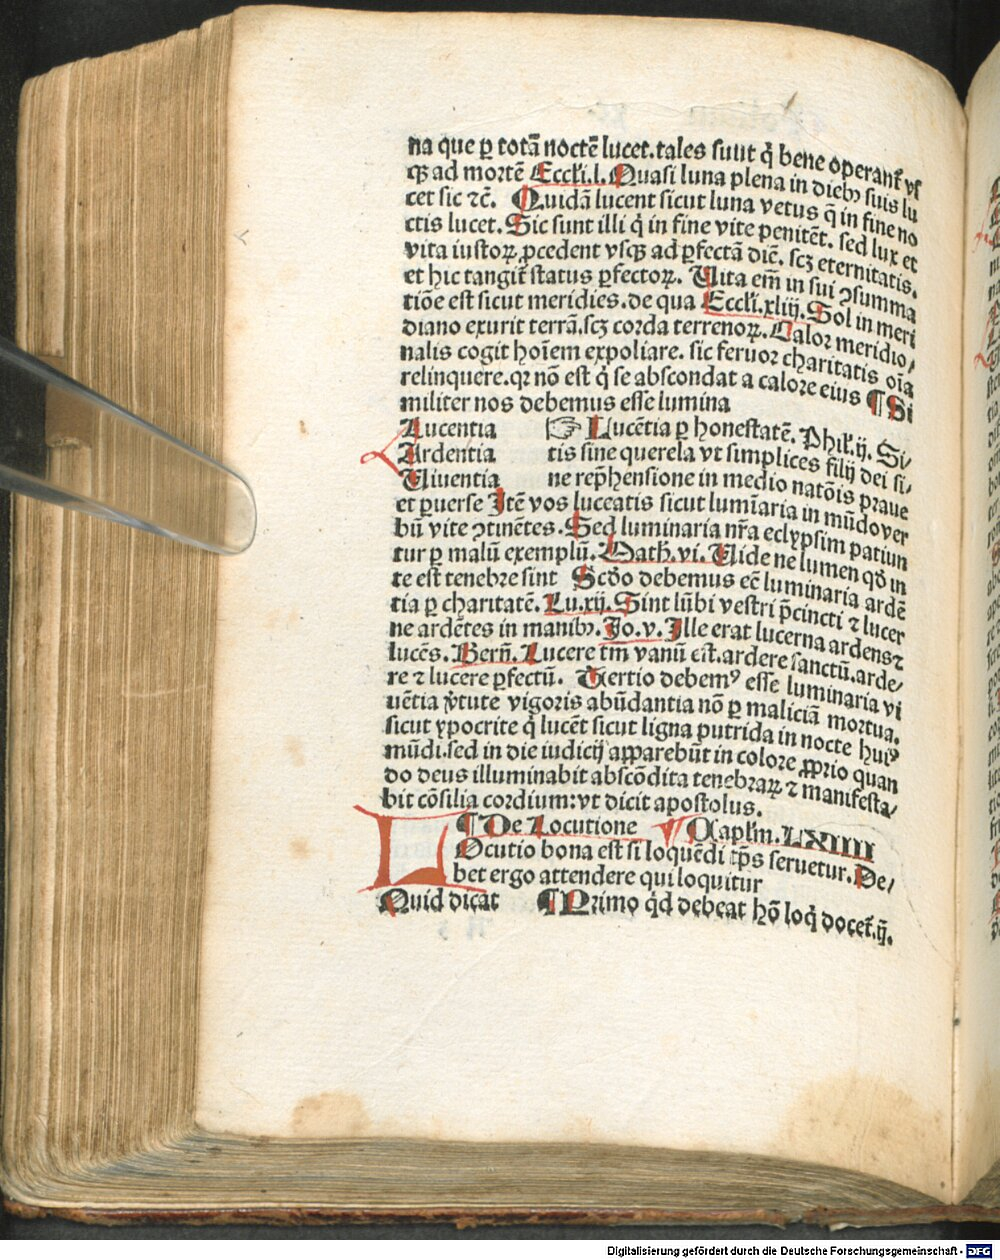 na que ꝑ totã noctẽ lucet. tales sunt q̃ bene operant᷑ vſ
qꝫ ad mortẽ Eccłi. l. Quasi luna plena in diebꝰ suis lu
cet sic ⁊c̃. Quidã lucent sicut luna vetus q̃ in fine no
ctis lucet. Sic sunt illi q̃ in fine vite penitẽt. sed lux et
vita iustoꝝ ꝓcedent vsqꝫ ad ꝑfectã diẽ. scꝫ eternitatis.
et hic tangit᷑ status ꝑfectoꝝ. Uita em̃ in sui ꝯsumma
tiõe est sicut meridies. de qua Eccłi. xliij. Sol in meri
diano exurit terrã. scꝫ corda terrenoꝝ. Calor meridio/
nalis cogit hoĩem expoliare. sic feruor charitatis oĩa
relinquere. qꝛ nõ est q̃ se abscondat a calore eius ¶ Si
militer nos debemus esse lumina
Lucentia ☞ Lucẽtia ꝑ honestatẽ. Phił. ij. Si/
Ardentia tis sine querela vt simplices filij dei si/
Uiuentia ne rep̃hensione in medio natõis praue
et ꝑuerse Itẽ vos luceatis sicut lumĩaria in mũdo ver
bũ vite ꝯtinẽtes. Sed luminaria nr̃a eclypsim patiun
tur ꝑ malũ exemplũ. Math. vi. Uide ne lumen qđ in
te est tenebre sint Scđo debemus eẽ luminaria ardẽ
tia ꝑ charitatẽ. Lu. xij. Sint lũbi vestri p̃cincti ⁊ lucer
ne ardẽtes in manibꝰ. Jo. v. Ille erat lucerna ardens ⁊
lucẽs. Berñ. Lucere tm̃ vanũ est. ardere sanctũ. arde/
re ⁊ lucere ꝑfectũ. Tertio debemꝰ esse luminaria vi
uẽtia v̾tute vigoris abũdantia nõ ꝑ maliciã mortua.
sicut ypocrite q̃ lucẽt sicut ligna putrida in nocte huiꝰ
mũdi. sed in die iudicij apparebũt in colore ꝓprio quan
do deus illuminabit abscõdita tenebraꝝ ⁊ manifesta/
bit cõsilia cordium: vt dicit apostolus.
¶ De Locutione Capłm. LXIIII
LOcutio bona est si loquẽdi tp̃s seruetur. De/
bet ergo attendere qui loquitur
Quid dicat ¶ Primo q̃d debeat hõ loq̃ docet᷑. ij.
Digitalisierung gefördert durch die Deutsche Forschungsgemeinschaft - DFG